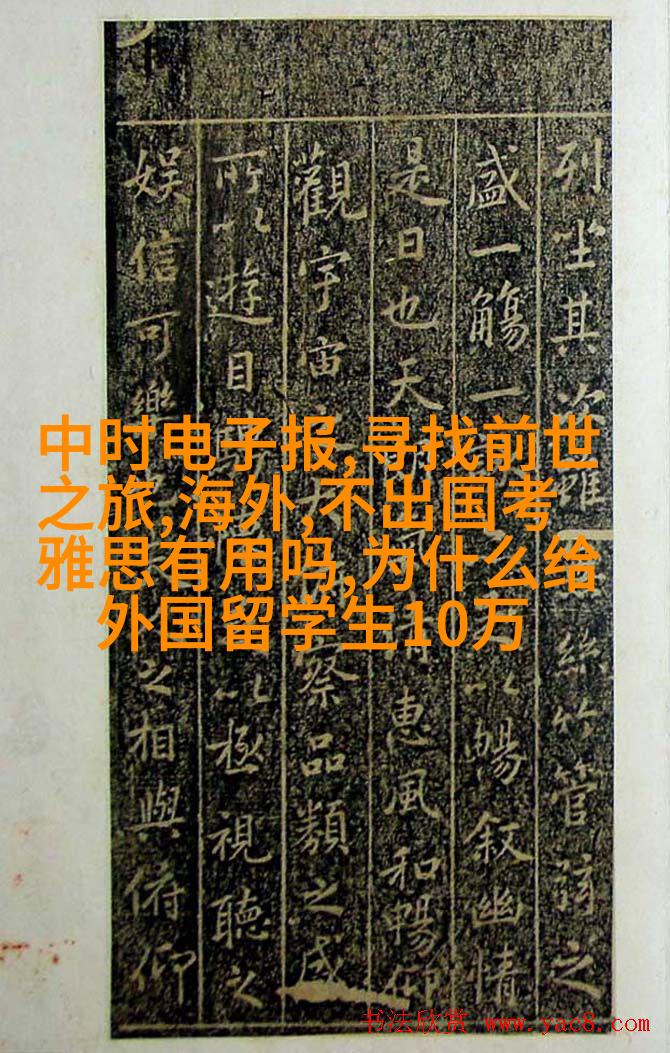 列坐其次雖絲竹管絃之
盛一觴一以暢叙幽情
是日也天惠風和暢仰
觀宇宙察品類之盛
所以遊目以極視聽之
娱信可樂之相與俯仰
中时电子报,寻找前世
之旅,海外,不出国考
雅思有用吗,为什么给
外国留学生10万
书法欣赏 www.yac8.com